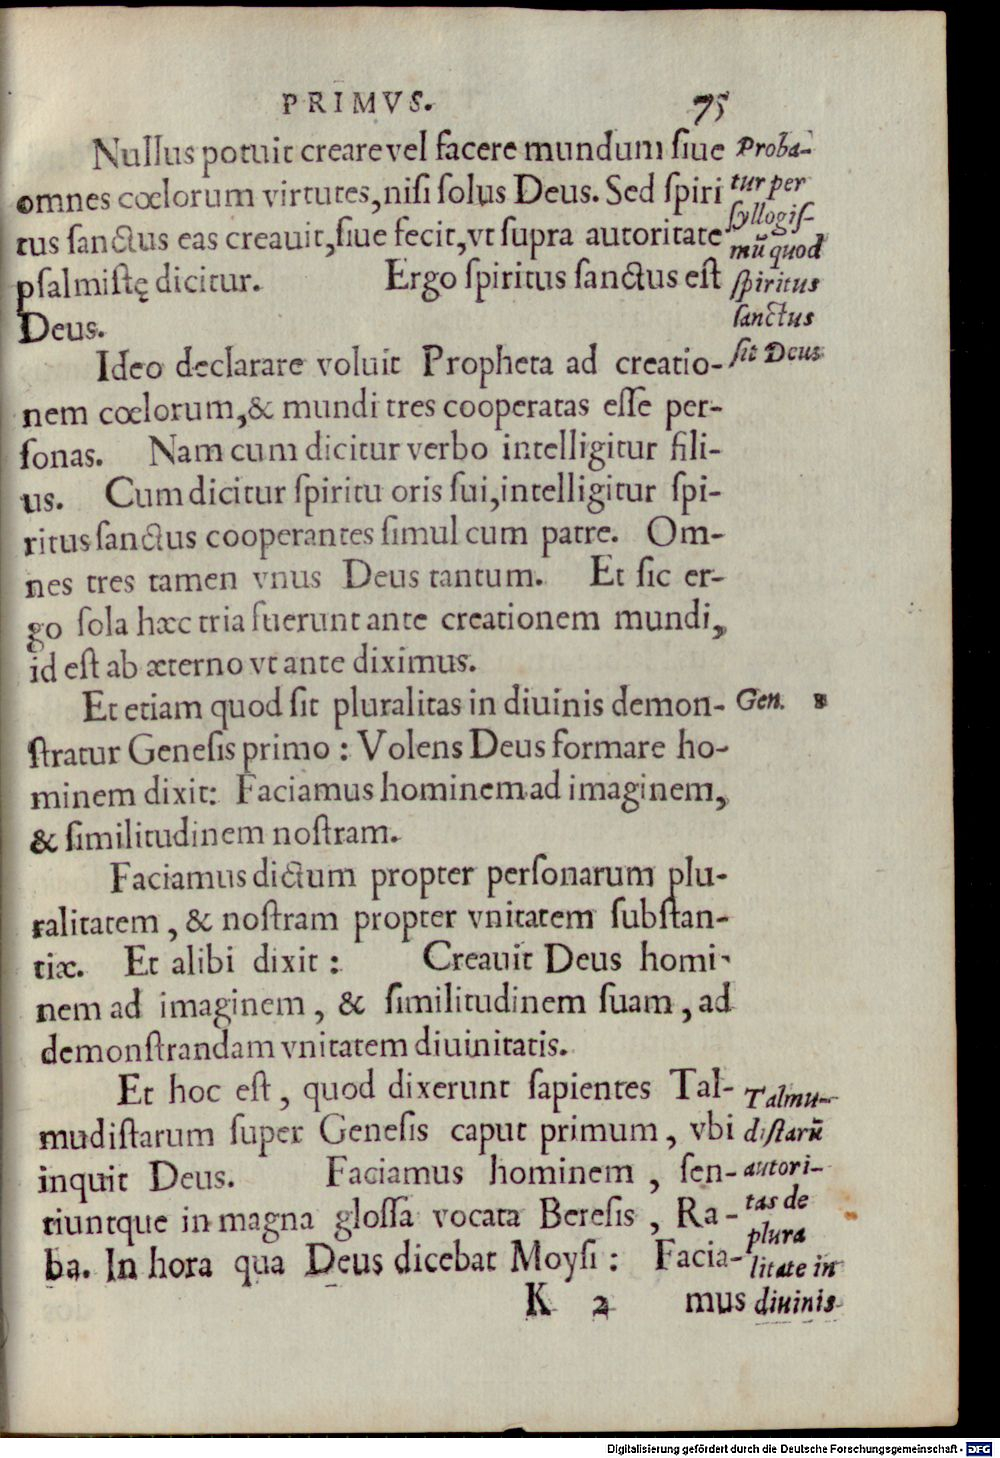 PRIMVS. 75
Nullus potuit creare vel facere mundum ſiue
omnes cœlorum virtutes, niſi ſolus Deus. Sed ſpiri
tus ſanctus eas creauit, ſiue fecit, vt ſupra autoritate
pſalmiſtę dicitur. Ergo ſpiritus ſanctus eſt
Deus.
Proba-
tur per
ſyllogiſ-
mũ quod
ſpiritus
ſanctus
ſit Deus
Ideo declarare voluit Propheta ad creatio-
nem cœlorum, & mundi tres cooperatas eſſe per-
ſonas. Nam cum dicitur verbo intelligitur fili-
us. Cum dicitur ſpiritu oris ſui, intelligitur ſpi-
ritus ſanctus cooperantes ſimul cum patre. Om-
nes tres tamen vnus Deus tantum. Et ſic er-
go ſola hæc tria fuerunt ante creationem mundi,
id eſt ab æterno vt ante diximus.
Et etiam quod ſit pluralitas in diuinis demon-
ſtratur Geneſis primo : Volens Deus formare ho-
minem dixit: Faciamus hominem ad imaginem,
& ſimilitudinem noſtram.
Gen.
Faciamus dictum propter perſonarum plu-
ralitatem, & noſtram propter vnitatem ſubſtan-
tiæ. Et alibi dixit : Creauit Deus homi-
nem ad imaginem, & ſimilitudinem ſuam, ad
demonſtrandam vnitatem diuinitatis.
Et hoc eſt, quod dixerunt ſapientes Tal-
mudiſtarum ſuper Geneſis caput primum, vbi
inquit Deus. Faciamus hominem, ſen-
tiuntque in magna gloſſa vocata Bereſis, Ra-
ba. In hora qua Deus dicebat Moyſi : Facia-
Talmu-
diſtarũ
autori-
tas de
plura
litate in
diuinis
K 2 mus
Digitalisierung gefördert durch die Deutsche Forschungsgemeinschaft - DFG